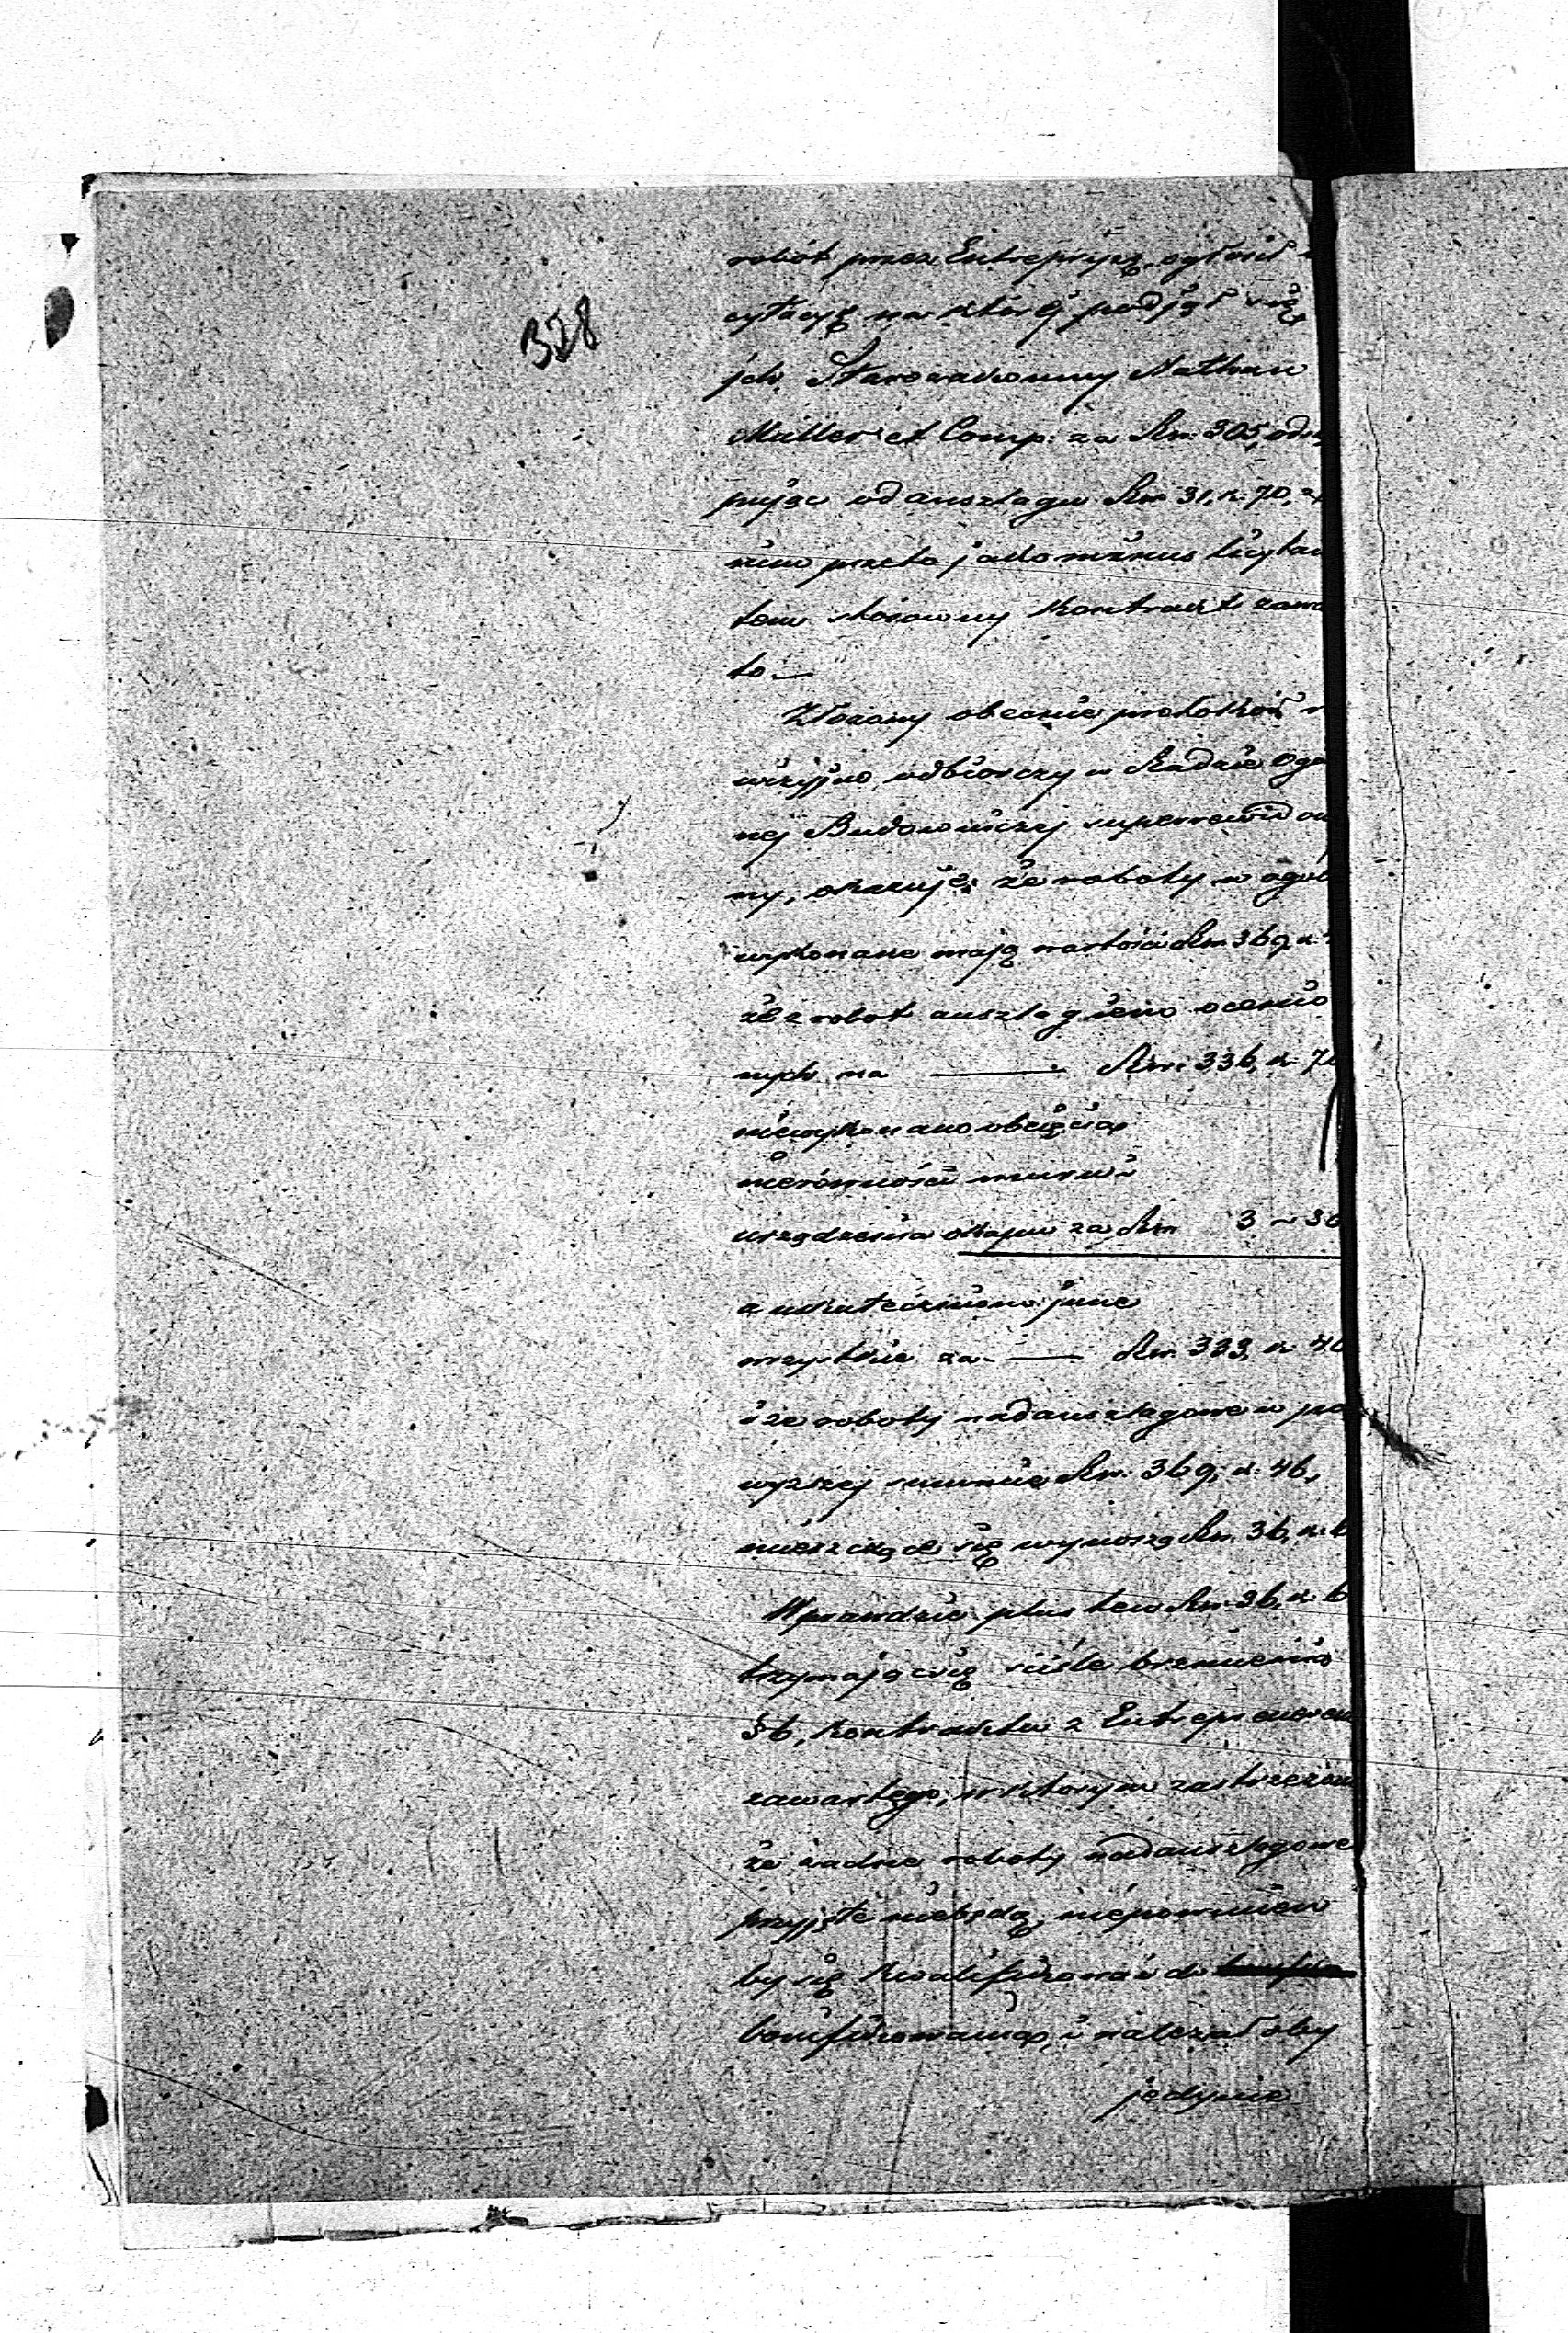 328
robót przez Entrepryzę ogłosił
cytacyę na której podjął się
ich Starozakonny Nathan
Müller et Comp: za Rsr. 305,
pując od anszlagu Rsr 31, k. 70,
nim przeto jako minus licytan
tem stosowny Kontrakt zawar
to.—
Złożony obecnie protokół
wizyjno odbiorczy w Radzie Ogó
nej Budowniczej superrewidowa
ny, okazuje: że roboty w ogól
wykonane mają wartości Rsr 369, k.
że z robot anszlagiem ocenio
nych na ——— Rsr: 336, k. 70
niewykonano obcięcia
nierówności muru i
urządzenia okapu za Rsr 3 ~ 30
a uskuteczniono inne
wszystkie za — Rsr. 333, k 40
i że roboty nadanszlagowe w po
wyższej summie Rsr. 369, k. 46,
mieszczące się wynoszą Rsr. 36, k. 6
Wprawdzie plus ten Rsr. 36, k. 6
trzymając się ściśle brzmienia
§ 6, Kontraktu z Entrepreneurem
zawartego, w którym zastrzeżono
że żadne roboty nadanszlagowe
przyjęte niebędą, niepowinien
by się kwalifikować do
bonifikowania, i należałoby
jedynie